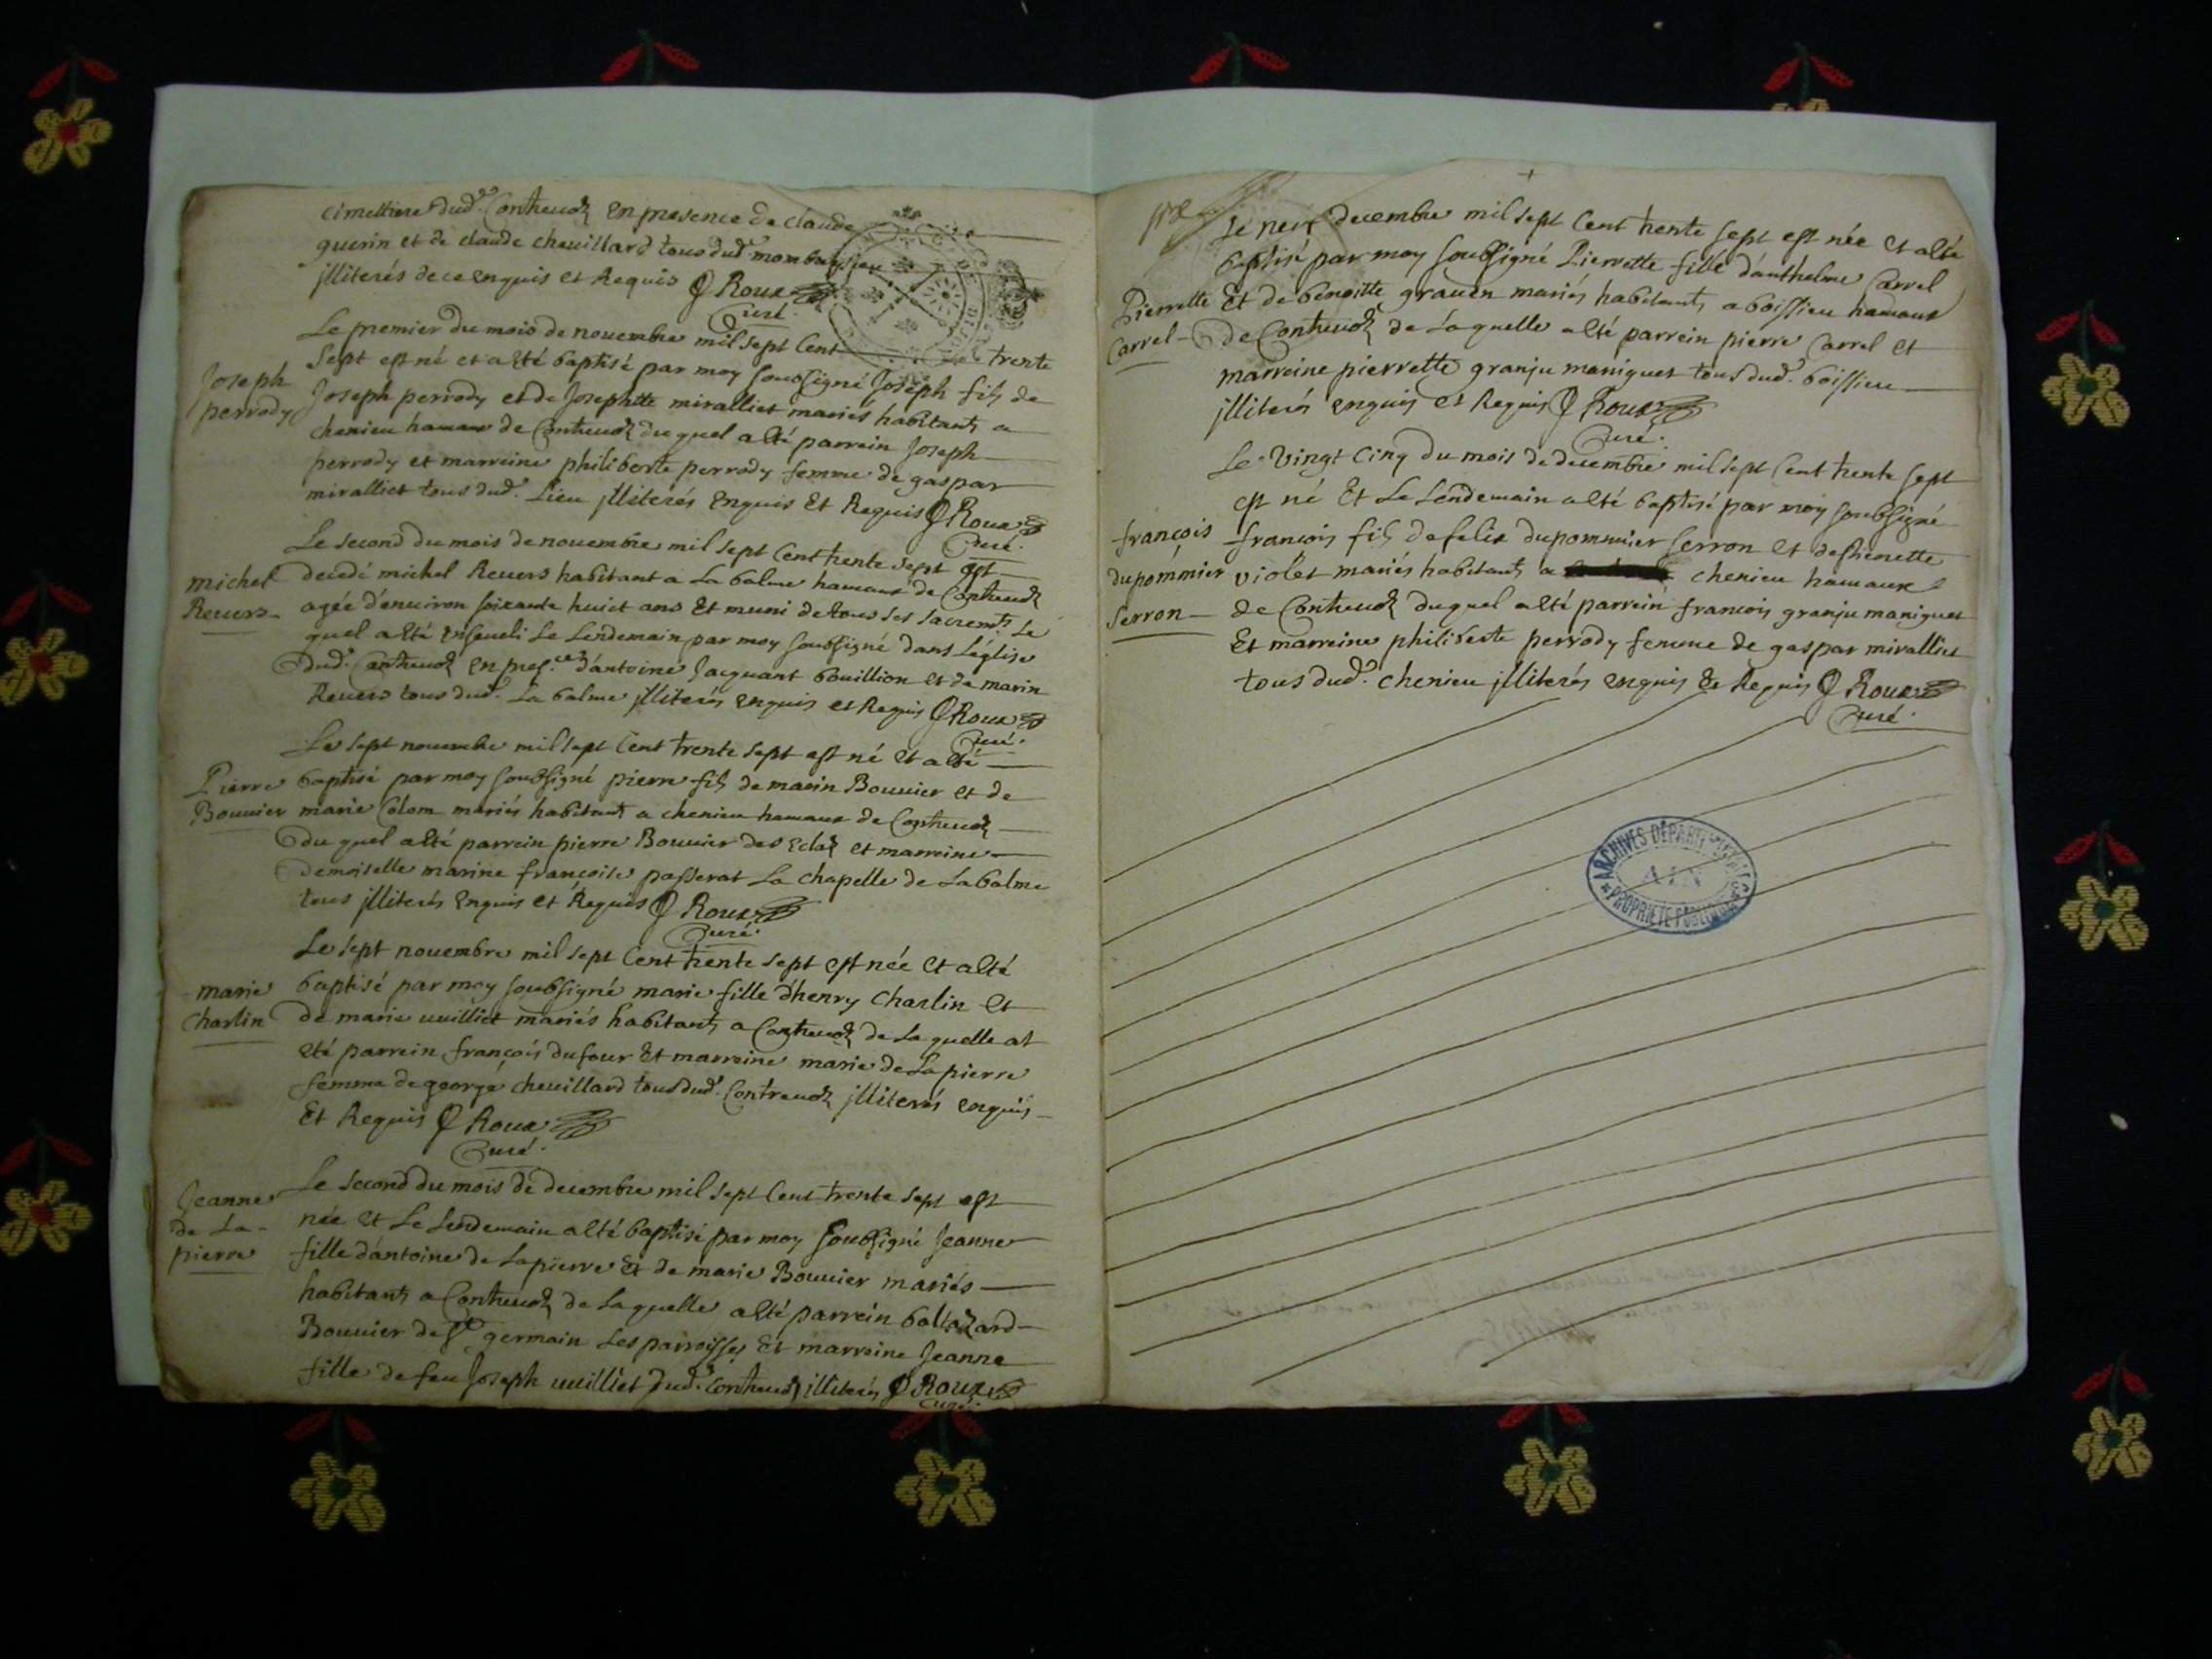 cimettiere dud. Contreuoz en presence de claude
guerin et de claude cheuillard tous dud. mombaysieu
jlliterés de ce enquis et Requis Roux
Curé.
Le premier du mois de nouembre mil sept Cent trente
Sept est né et a eté baptisé par moy soubsigné Joseph fils de
Joseph
perrody
Joseph perrody et de Josephtte miralliet mariés habitants a
chenieu hamaux de Contreuoz du quel a eté parrein Joseph
perrody et marreine philiberte perrody femme de gaspar
miralliet tous dud. Lieu jlliterés enquis Et Requis Roux
Curé.
Le second du mois de nouembre mil sept Cent trente sept est
michel
Reuers
decedé michel Reuers habitant a La balme hamaux de Contreuoz
agée d'enuiron soixante huict ans Et muni de tous ses sacremts Le
quel a eté enseueli Le Lendemain par moy soubsigné dans L'église
dud. Contreuoz en pres.ce d'antoine Jacquant bouillion et de marin
Reuers tous dud. La balme jlliterés enquis et Requis Roux
Curé.
Le sept nouembre mil sept Cent trente sept est né et a eté
Pierre
Bouuier
baptisé par moy soubsigné pierre fils de marin Bouuier et de
marie Colom mariés habitants a chenieu hamaux de Contreuoz
du quel a eté parrein pierre Bouuier des Eclaz et marreine
demoiselle marine françoise passerat La chapelle de La balme
tous jlliterés enquis et Requis Roux
Curé.
Le sept nouembre mil sept Cent trente sept est née et a eté
marie
Charlin
baptisé par moy soubsigné marie fille d'henry Charlin et
de marie uuilliet mariés habitants a Contreuoz de La quelle at
eté parrein françois dufour Et marreine marie de La pierre
femme de george cheuillard tous dud. Contreuoz jlliterés enquis
Et Requis Roux
Curé.
Le second du mois de decembre mil sept Cent trente sept est
Jeanne
de La
pierre
née et Le Lendemain a eté baptisé par moy soubsigné Jeanne
fille d'antoine de La pierre Et de marie Bouuier mariés
habitants a Contreuoz de Laquelle a eté parrein baltazard
Bouuier de St germain Les parroisses Et marreine Jeanne
fille de feu Joseph uuilliet dud. contreuoz illiterés Roux
Curé.
Le neuf decembre mil sept Cent trente sept est née et a eté
baptisé par moy soubsigné Pierrette fille d'anthelme Carrel
Pierrette
Carrel
Et de benoitte grauen mariés habitants a boissieu hamaux
de Contreuoz de Laquelle a eté parrein pierre Carrel et
marreine pierrette granju maniguet tous dud. boissieu
jlliterés enquis et Requis Roux
Curé.
Le Vingt Cinq du mois de decembre mil sept Cent trente sept
est né Et Le Lendemain a eté baptisé par moy soubsigné
françois
dupommier
Serron
françois fils de felix dupommier serron et
violet mariés habitants a chenieu hamaux
de Contreuoz duquel a eté parrein françois granju maniguet
Et marreine philiberte perrody femme de gaspar miralliet
tous dud. chenieu jlliterés enquis Et Requis Roux
Curé.
ARCHIVES DÉPARTEMENTALES
AIN
PROPRIETE PUBLIQUE